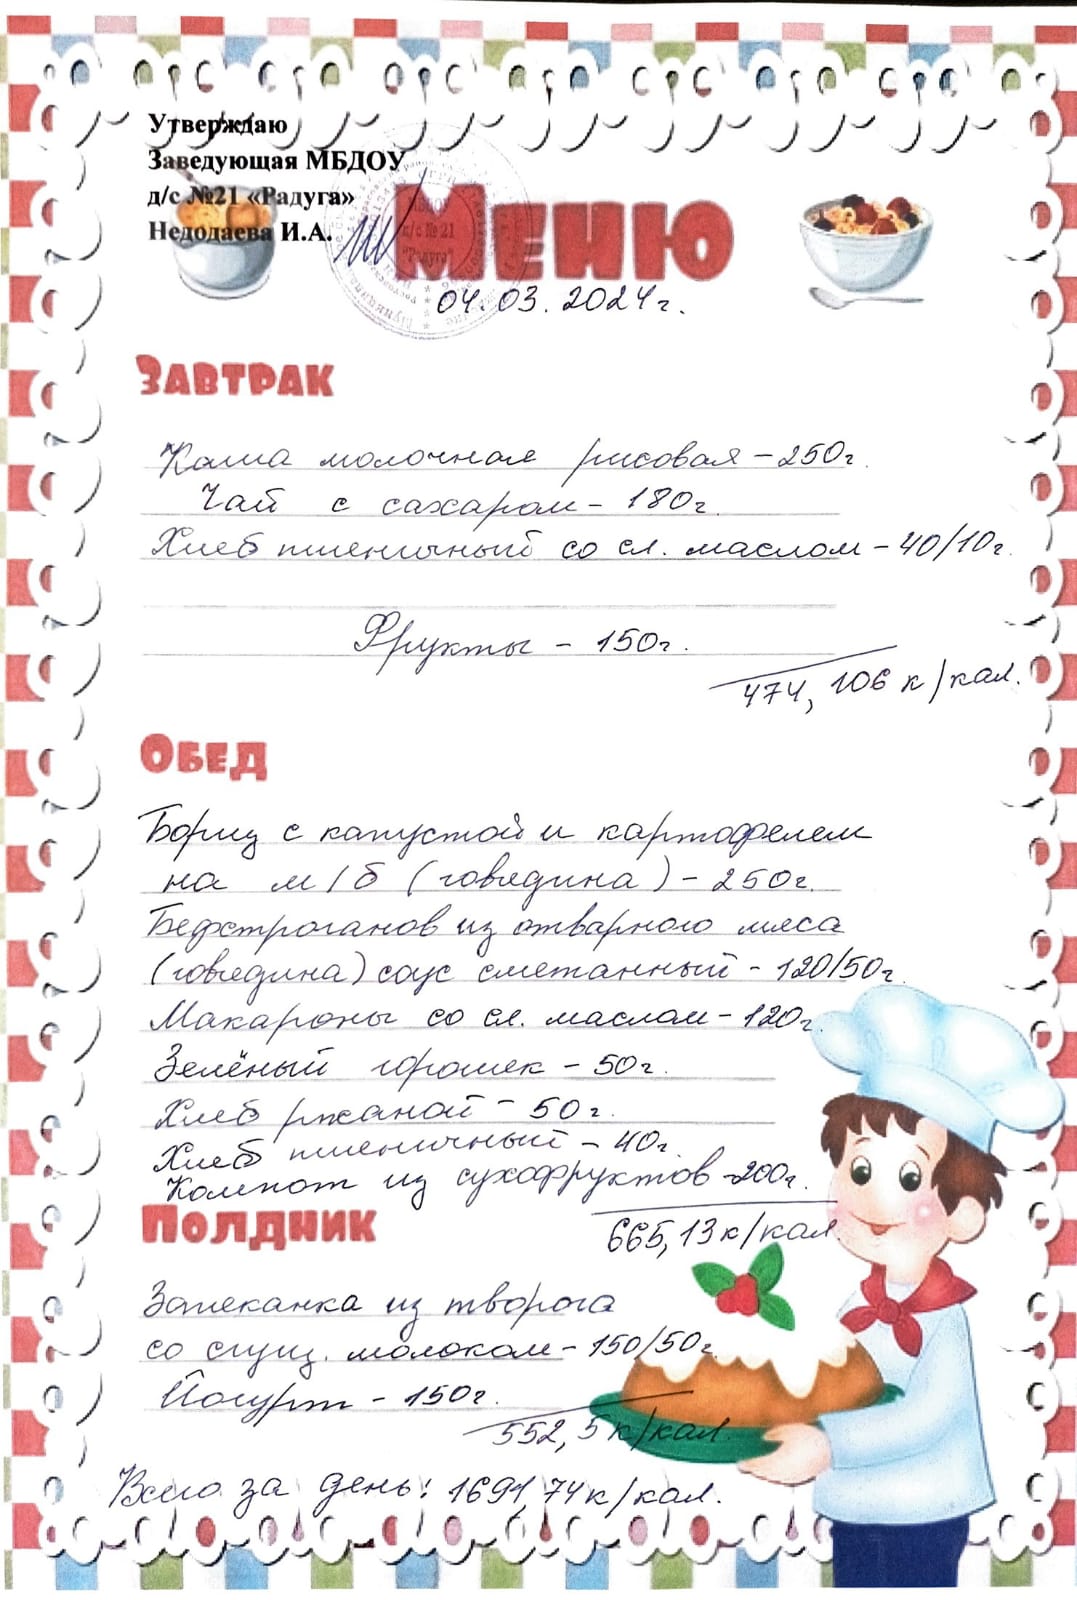 Утверждаю
Заведующая МБДОУ
д/с №21 «Радуга»
Недодаева И.А.
МБДОУ
д/с № 21
"Радуга"
Меню
04.03.2024г.
Завтрак
Каша молочная рисовая – 250г.
Чай с сахаром – 180г.
Хлеб пшеничный со сл. маслом – 40/10г.
Фрукты – 150г.
474,106 к/кал.
Обед
Борщ с капустой и картофелем
на м/б (говядина) – 250г.
Бефстроганов из отварного мяса
(говядина) соус сметанный – 120/50г.
Макароны со сл. маслом – 120г.
Зелёный горошек – 50г.
Хлеб ржаной – 50г.
Хлеб пшеничный – 40г.
Компот из сухофруктов – 200г.
665,13 к/кал.
Полдник
Запеканка из творога
со сгущ. молоком – 150/50г.
Йогурт – 150г.
552,5 к/кал.
Всего за день: 1691,74 к/кал.